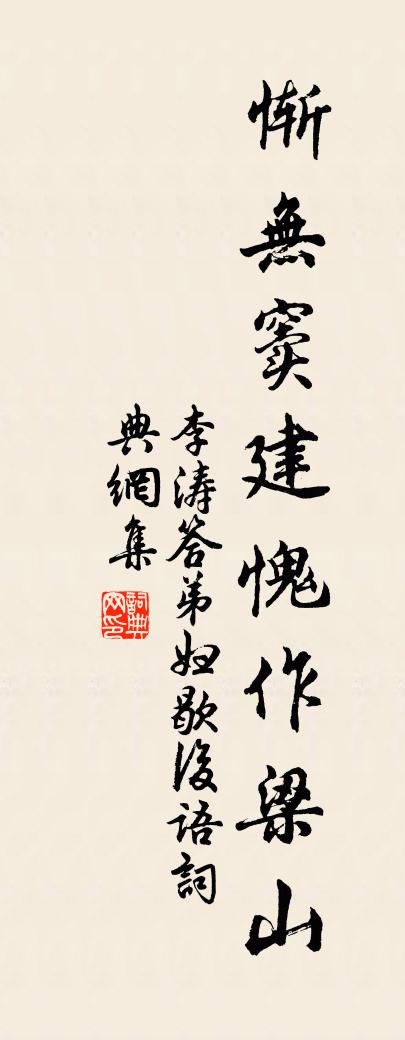 慚無竇建愧作梁山
李濤答弟妇歇後語詞
典網集
詞典
网印